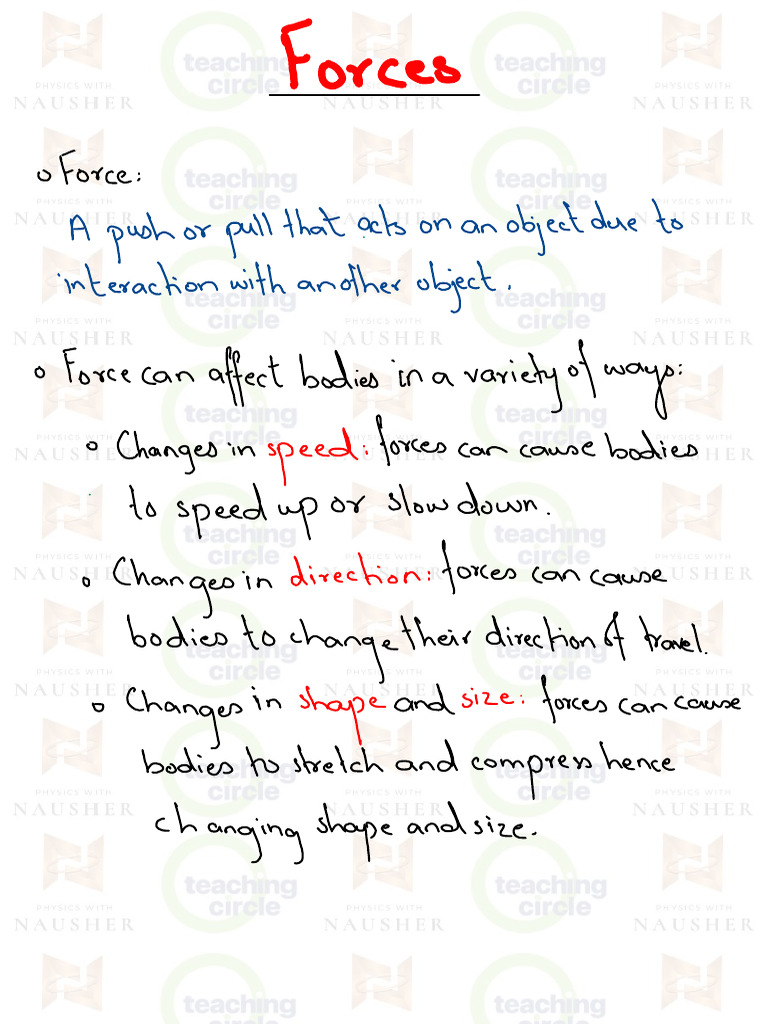 Forces
o Force:
A push or pull that acts on an object due to
interaction with another object.
o Force can affect bodies in a variety of ways:
o Changes in speed: forces can cause bodies
to speed up or slow down.
o Changes in direction: forces can cause
bodies to change their direction of travel.
o Changes in shape and size: forces can cause
bodies to stretch and compress hence
changing shape and size.
teaching circle
PHYSICS WITH
NAUSHER